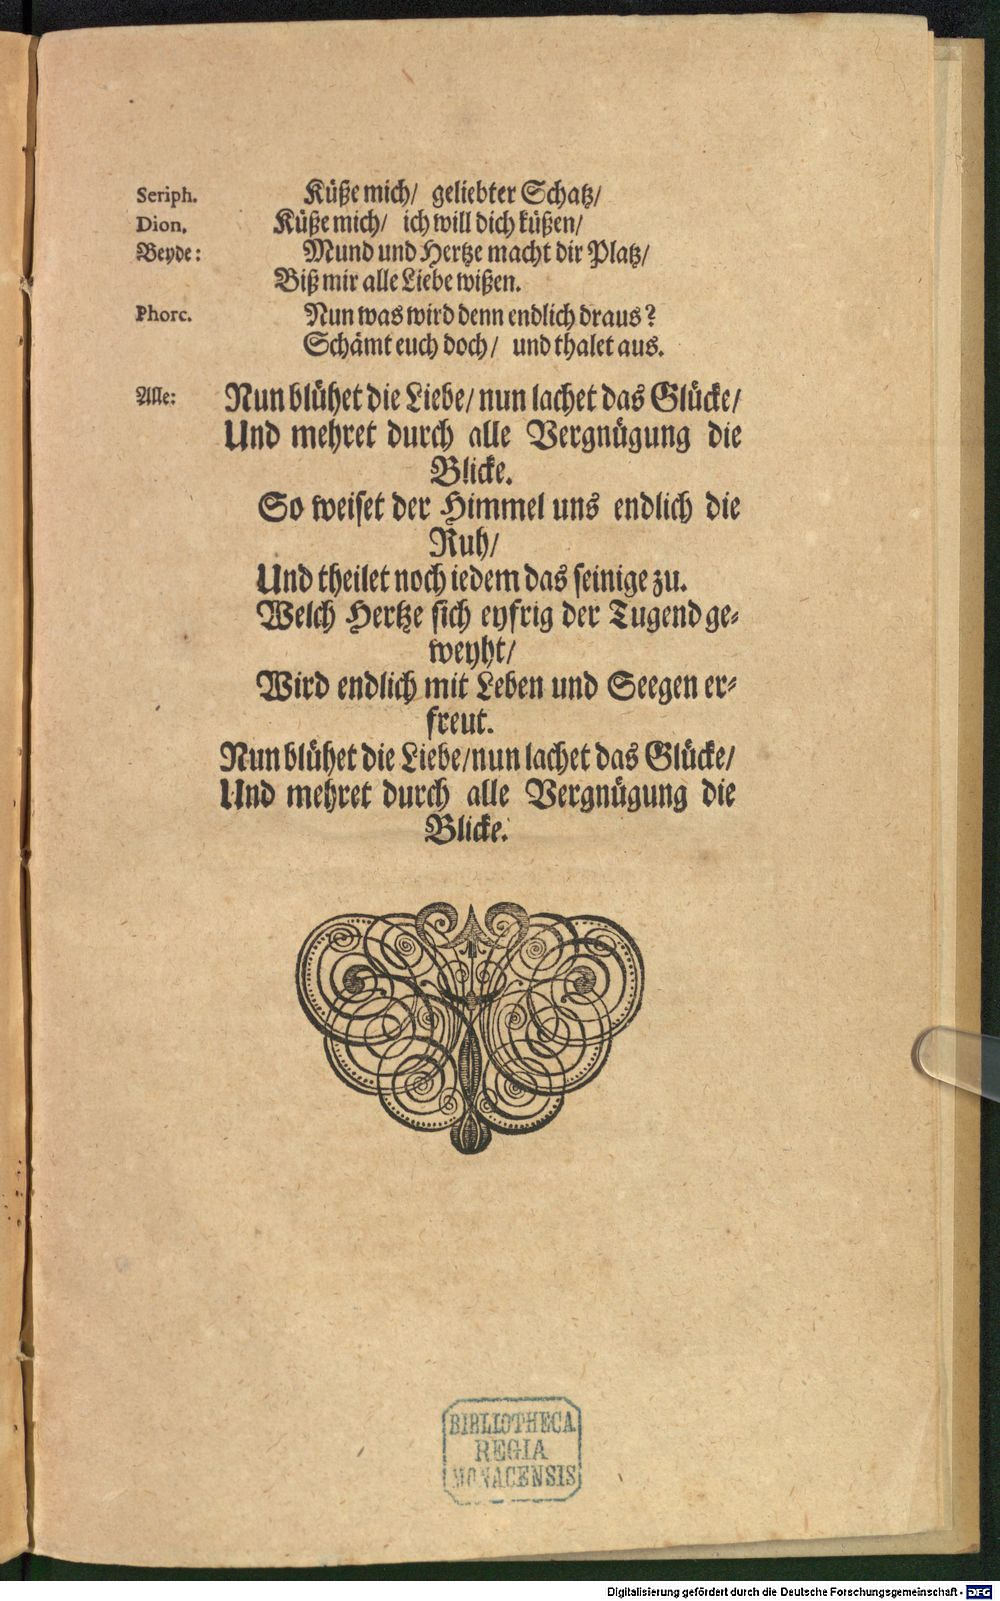 Seriph. Küße mich/ geliebter Schatz/
Dion. Küße mich/ ich will dich küßen/
Beyde: Mund und Hertze macht dir Platz/
Biß mir alle Liebe wißen.
Phorc. Nun was wird denn endlich draus?
Schämt euch doch/ und thalet aus.
Alle: Nun blühet die Liebe/ nun lachet das Glücke/
Und mehret durch alle Vergnügung die
Blicke.
So weiset der Himmel uns endlich die
Ruh/
Und theilet noch iedem das seinige zu.
Welch Hertze sich eyfrig der Tugend ge-
weyht/
Wird endlich mit Leben und Seegen er-
freut.
Nun blühet die Liebe/nun lachet das Glücke/
Und mehret durch alle Vergnügung die
Blicke.
BIBLIOTHECA
REGIA
MONACENSIS
Digitalisierung gefördert durch die Deutsche Forschungsgemeinschaft - DFG